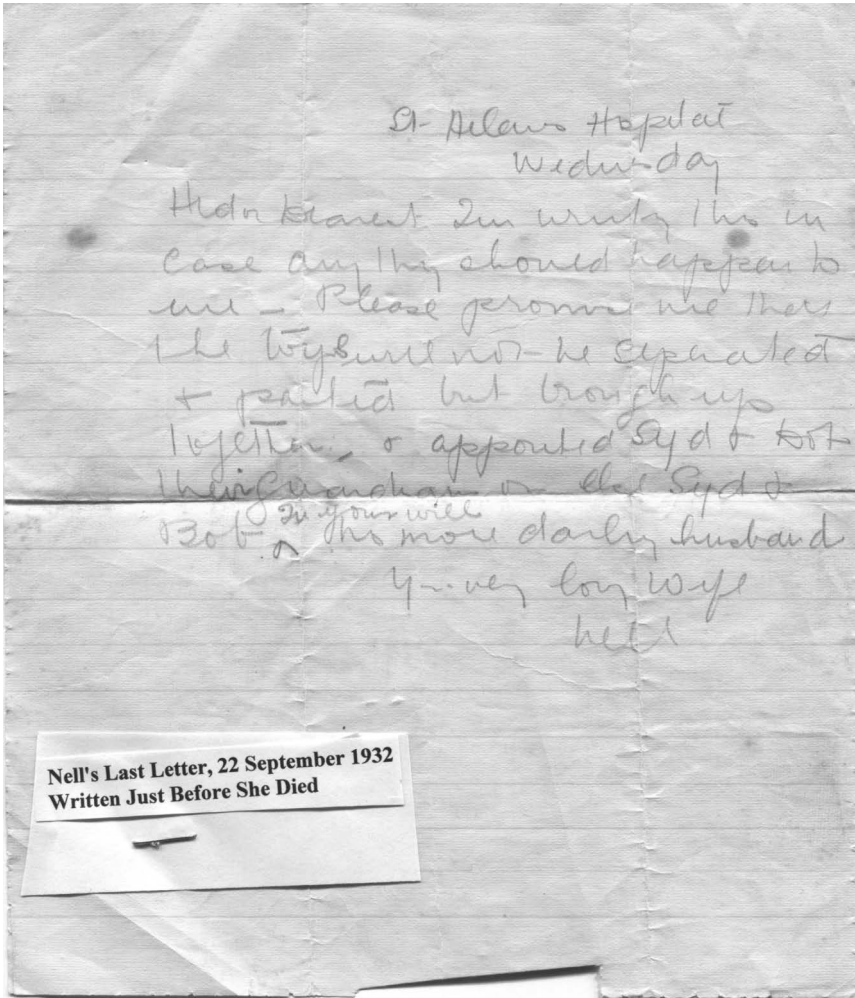 St Helens Hospital
Wednesday
dearest I'm writing this in
case anything should happen to
me – Please promise me that
the boys will not be separated
& parted but brought up
together, & appointed Syd & Dot
their guardian or else Syd &
Bob in your will
no more darling husband
Yr very lovg Wife
Nell
Nell's Last Letter, 22 September 1932
Written Just Before She Died